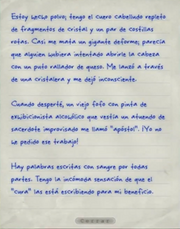 Estoy hecho polvo; tengo el cuero cabelludo repleto
de fragmentos de cristal y un par de costillas
rotas. Casi me mata un gigante deforme; parecía
que alguien hubiera intentado abrirle la cabeza
con un puto rallador de queso. Me lanzó a través
de una cristalera y me dejó inconsciente.
Cuando desperté, un viejo fofo con pinta de
exhibicionista alcohólico que vestía un atuendo de
sacerdote improvisado me llamó "apóstol". ¡Yo no
he pedido ese trabajo!
Hay palabras escritas con sangre por todas
partes. Tengo la incómoda sensación de que el
"cura" las está escribiendo para mi beneficio.